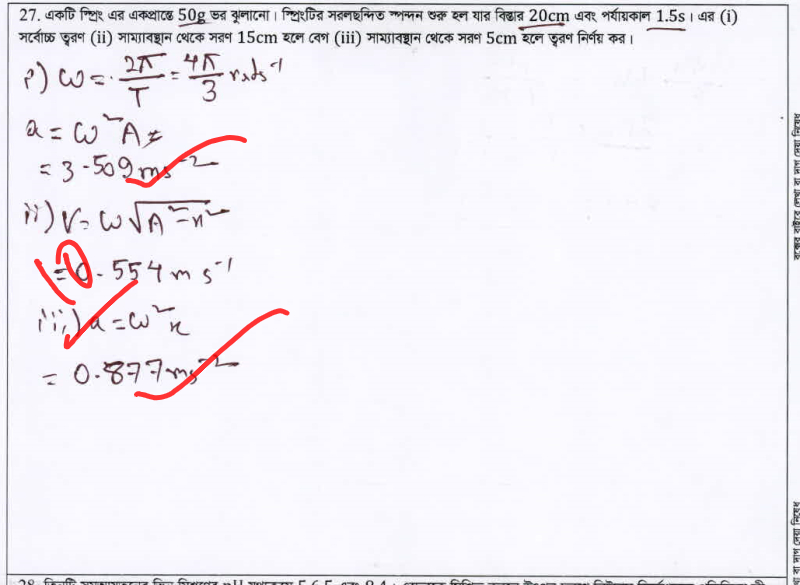 27. একটি স্প্রিং এর একপ্রান্তে 50g ভর ঝুলানো। স্প্রিংটির সরলছন্দিত স্পন্দন শুরু হল যার বিস্তার 20cm এবং পর্যায়কাল 1.5s। এর (i)
সর্বোচ্চ ত্বরণ (ii) সাম্যাবস্থান থেকে সরণ 15cm হলে বেগ (iii) সাম্যাবস্থান থেকে সরণ 5cm হলে ত্বরণ নির্ণয় কর।
i) ω = 2π/T = 4π/3 rads⁻¹
a = ω²A
= 3.509 ms⁻²
ii) v = ω√A²-x²
= 0.554 m s⁻¹
iii) a = ω²x
= 0.877 ms⁻²
10